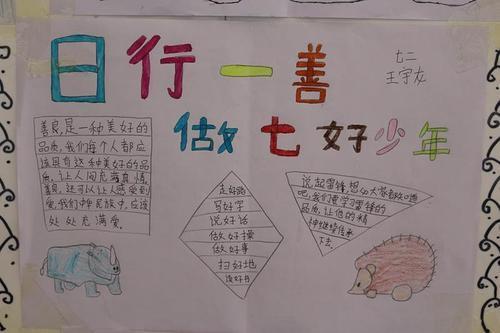 日行一善
七二
王宇友
做七好少年
善良是一种美好的
品质,我们每个人都应
该具有这种美好的品
质,让人间充满真情
善良,还可以让人感受到
爱,我们中华民族中,应该
处处充满爱。
走好路
写好字
说好话
做好操
做好事
扫好地
读好书
说起雷锋,想必大家都知道
吧,我们要学习雷锋的
品质,让他的精
神继续传承
下去。